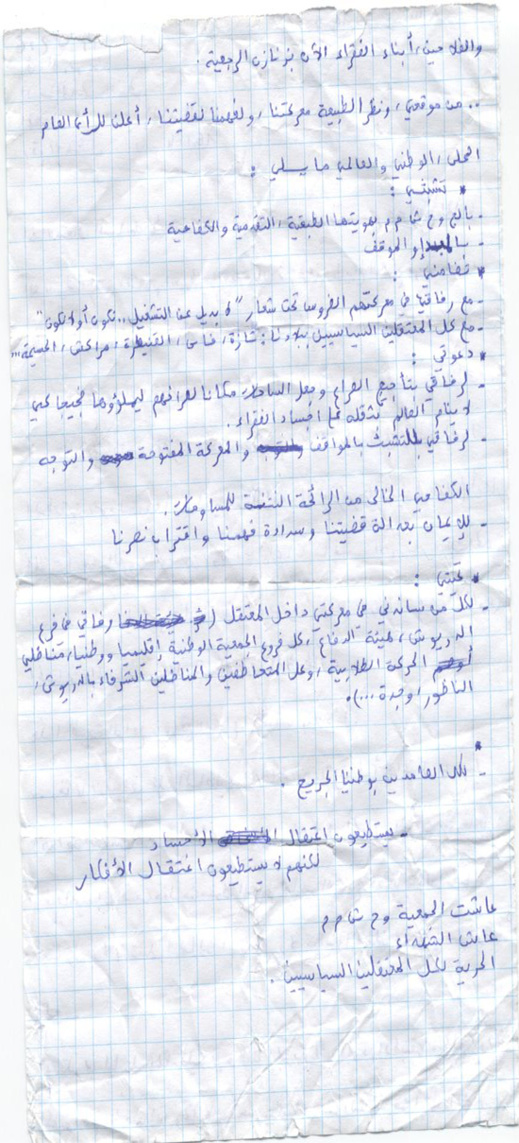 والفلاحين، أبناء الفقراء الآن بزنازن الرجعية.
.. من موقعي، ونظرا لطبيعة معركتنا، ولفهمنا لقضيتنا، أعلن للرأي العام
المحلي، الوطني والعالمي ما يلي :
* تشبثي :
- بالج و ح ش م م بهويتها الطبقية، التقدمية والكفاحية
- بالمبدإ والموقف
* تضامني :
- مع رفاقي في معركتهم الضروس تحت شعار "لا بديل عن التشغيل.. نكون أو لا نكون"
- مع كل المعتقلين السياسيين ببلادنا : تازة، فاس، القنيطرة، مراكش، الحسيمة...
* دعوتي :
- لرفاقي بتأجيج الصراع وجعل الساحات مكانا لصراخهم ليملؤوها ضجيجا كي
لا ينام العالم بثقله على أجساد الفقراء.
- لرفاقي بالتشبث بالمواقف والمعركة المفتوحة والتوجه
الكفاحي الخالي من الرائحة النتنة للمساومات.
- للإيمان بعدالة قضيتنا وسدادة فهمنا واقتراب نصرنا
* تحيتي :
- لكل من ساندني في معركتي داخل المعتقل ( رفاقي في فرع
الدريوش، لهيئة الدفاع، كل فروع الجمعية الوطنية إقليميا ووطنيا، مناضلي
الحركة الطلابية، وكل المتعاطفين والمناضلين الشرفاء بالدريوش،
الناظور، وجدة ...).
*
- لكل الصامدين بوطننا الجريح.
- يستطيعون اعتقال الأجساد
لكنهم لا يستطيعون اعتقال الأفكار
عاشت الجمعية و ح ش م م
عاش الشهداء
الحرية لكل المعتقلين السياسيين.